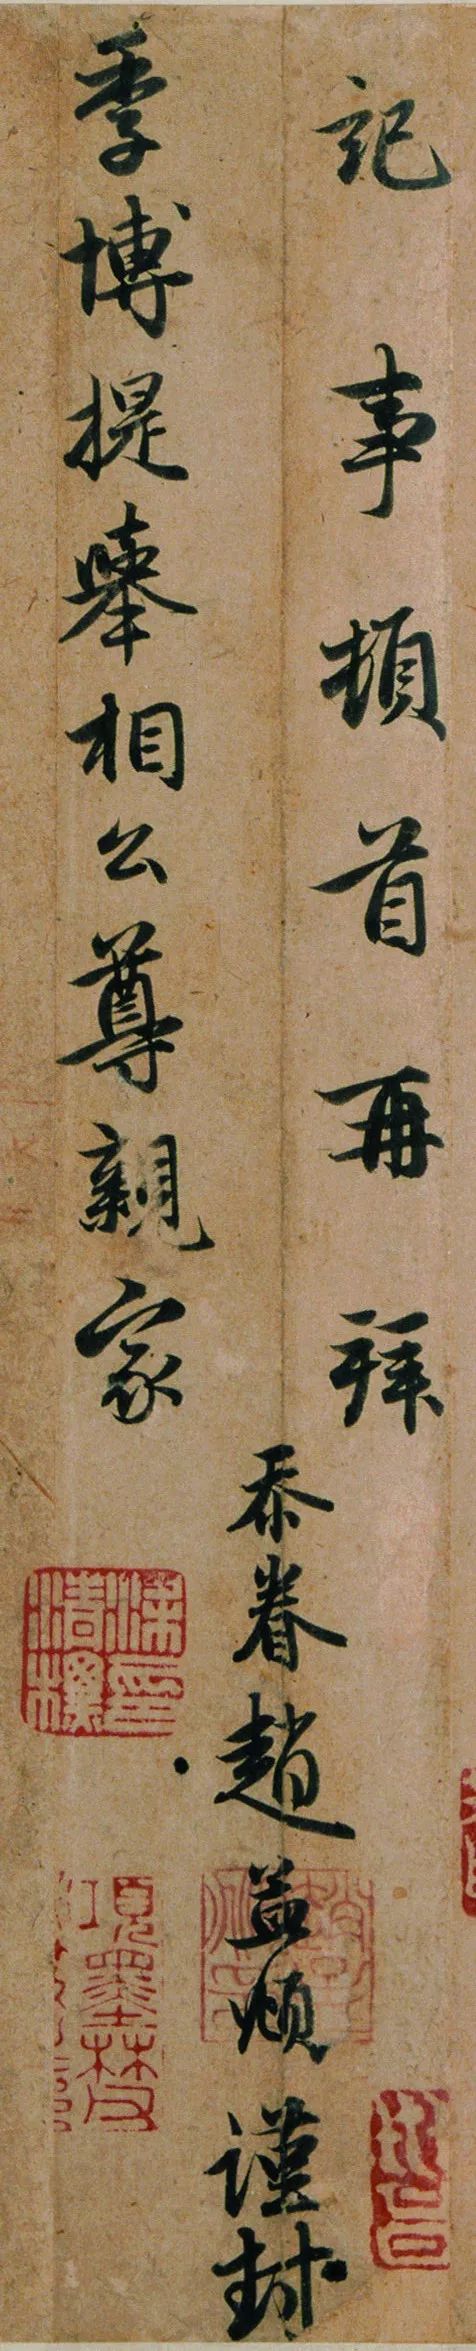 記事頓首再拜
忝眷趙孟頫謹封
季博提舉相公尊親家
項墨林父